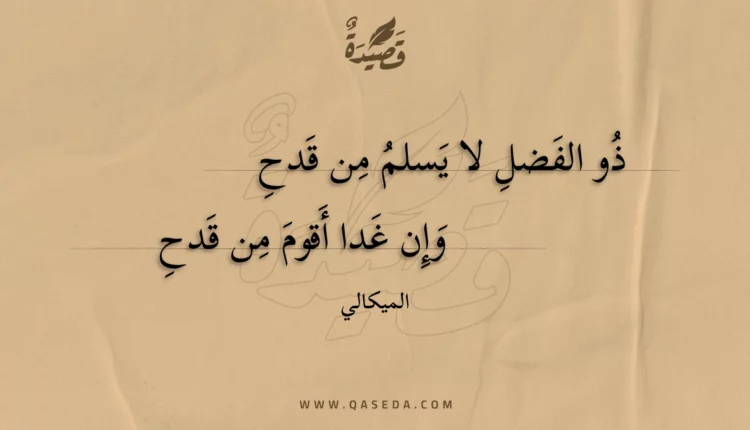 قَصِيْدَةٌ
ذُو الفَضلِ لا يَسلمُ مِن قَدحِ
وَإِن غَدا أَقومَ مِن قَدحِ
الميكالي
WWW.QASEDA.COM